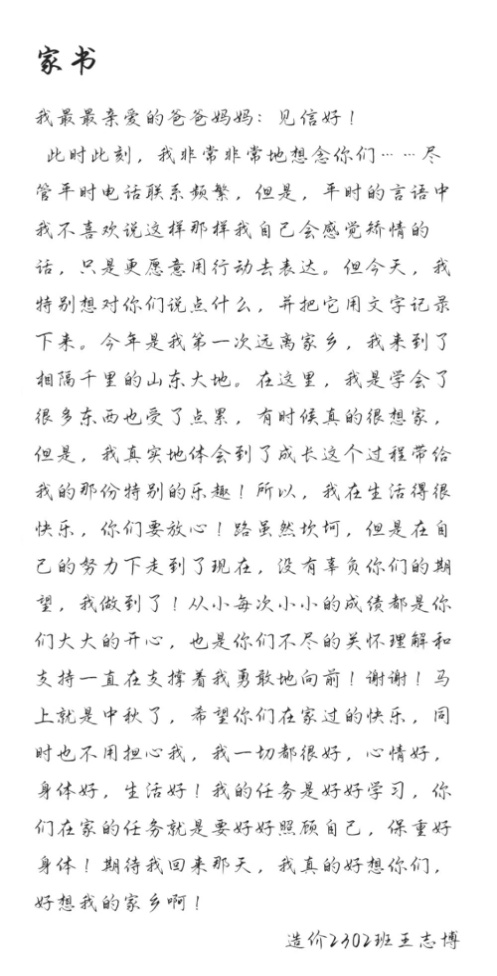 家书
我最最亲爱的爸爸妈妈：见信好！
此时此刻，我非常非常地想念你们……尽
管平时电话联系频繁，但是，平时的言语中
我不喜欢说这样那样我自己会感觉矫情的
话，只是更愿意用行动去表达。但今天，我
特别想对你们说点什么，并把它用文字记录
下来。今年是我第一次远离家乡，我来到了
相隔千里的山东大地。在这里，我是学会了
很多东西也受了点累，有时候真的很想家，
但是，我真实地体会到了成长这个过程带给
我的那份特别的乐趣！所以，我在生活得很
快乐，你们要放心！路虽然坎坷，但是在自
己的努力下走到了现在，没有辜负你们的期
望，我做到了！从小每次小小的成绩都是你
们大大的开心，也是你们不尽的关怀理解和
支持一直在支撑着我勇敢地向前！谢谢！马
上就是中秋了，希望你们在家过的快乐，同
时也不用担心我，我一切都很好，心情好，
身体好，生活好！我的任务是好好学习，你
们在家的任务就是要好好照顾自己，保重好
身体！期待我回来那天，我真的好想你们，
好想我的家乡啊！
造价2302班王志博